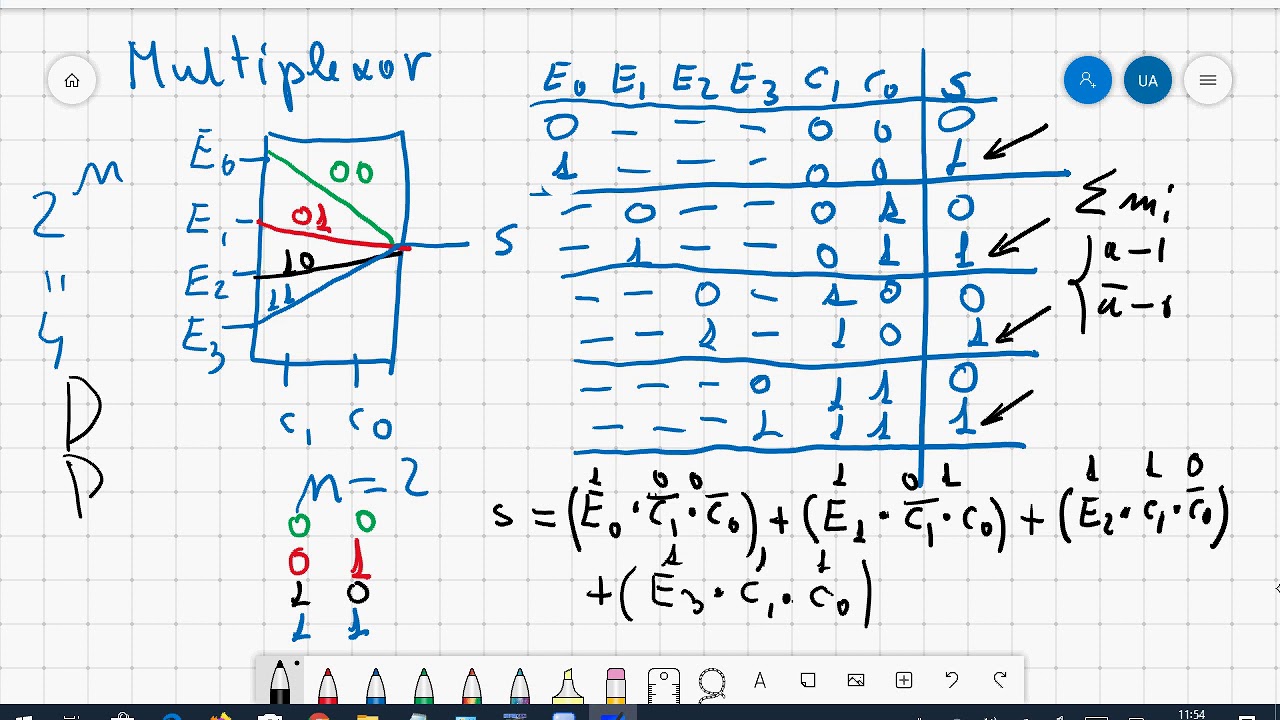 Multiplexor
2ⁿ
"
4
D
P
E₀
E₁
E₂
E₃
00
01
10
11
S
C₁ C₀
n = 2
0 0
0 1
1 0
1 1
E₀ E₁ E₂ E₃ C₁ C₀ S
0 – – – 0 0 0
1 – – – 0 0 1
– 0 – – 0 1 0
– 1 – – 0 1 1
– – 0 – 1 0 0
– – 1 – 1 0 1
– – – 0 1 1 0
– – – 1 1 1 1
Σ mᵢ
a – 1
1 0 0 1 0 1 1 1 0
S = (E₀ · C̅₁ · C̅₀) + (E₁ · C̅₁ · C₀) + (E₂ · C₁ · C̅₀)
1 1 1
+ (E₃ · C₁ · C₀)
UA
A
11:54